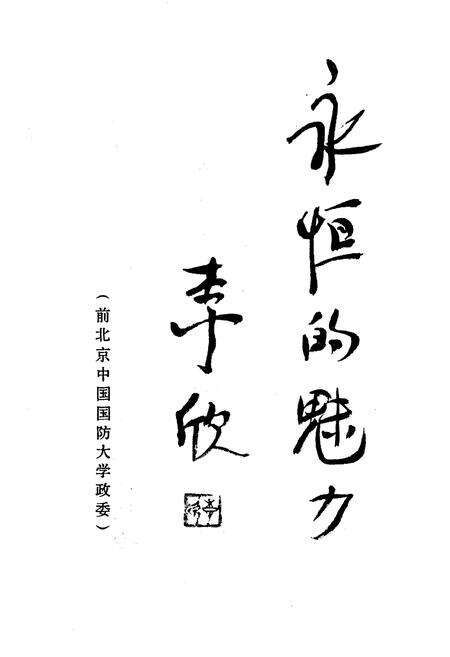 永恒的魅力
李欣
（前北京中国国防大学政委）